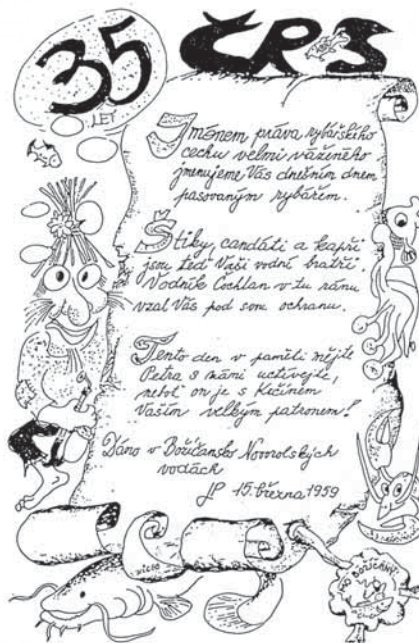 35
LET
ČRS
Jménem práva rybářského
cechu velmi váženého
jmenujeme Vás dnešním dnem
pasovaným rybářem.
Štiky, candáti a kapři
jsou teď Vaši vodní bratři.
Vodník Cochlan v tu ránu
vzal Vás pod sou ochranu.
Tento den v paměti mějte
Petra s námi uctívejte,
neboť on je s Kičínem
Vaším velkým patronem!
Dáno v Božičansko Novorolských
vodách
JP 15. března 1959
MO BOŽIČANY